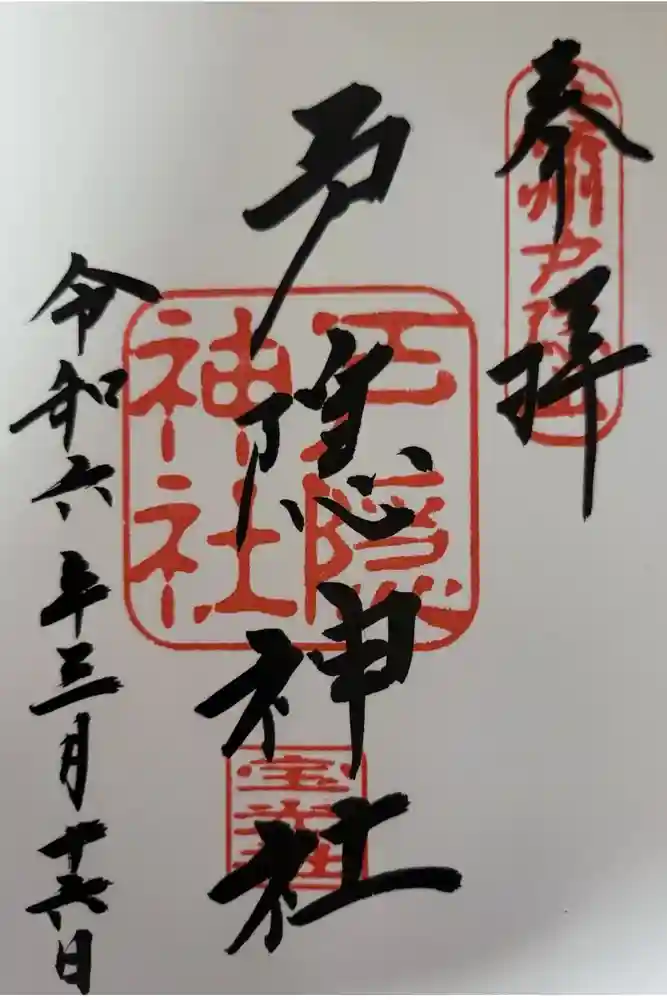 奉拝
信州戸隠山
戸隠神社
戸隠神社
宝光社
令和六年三月十六日